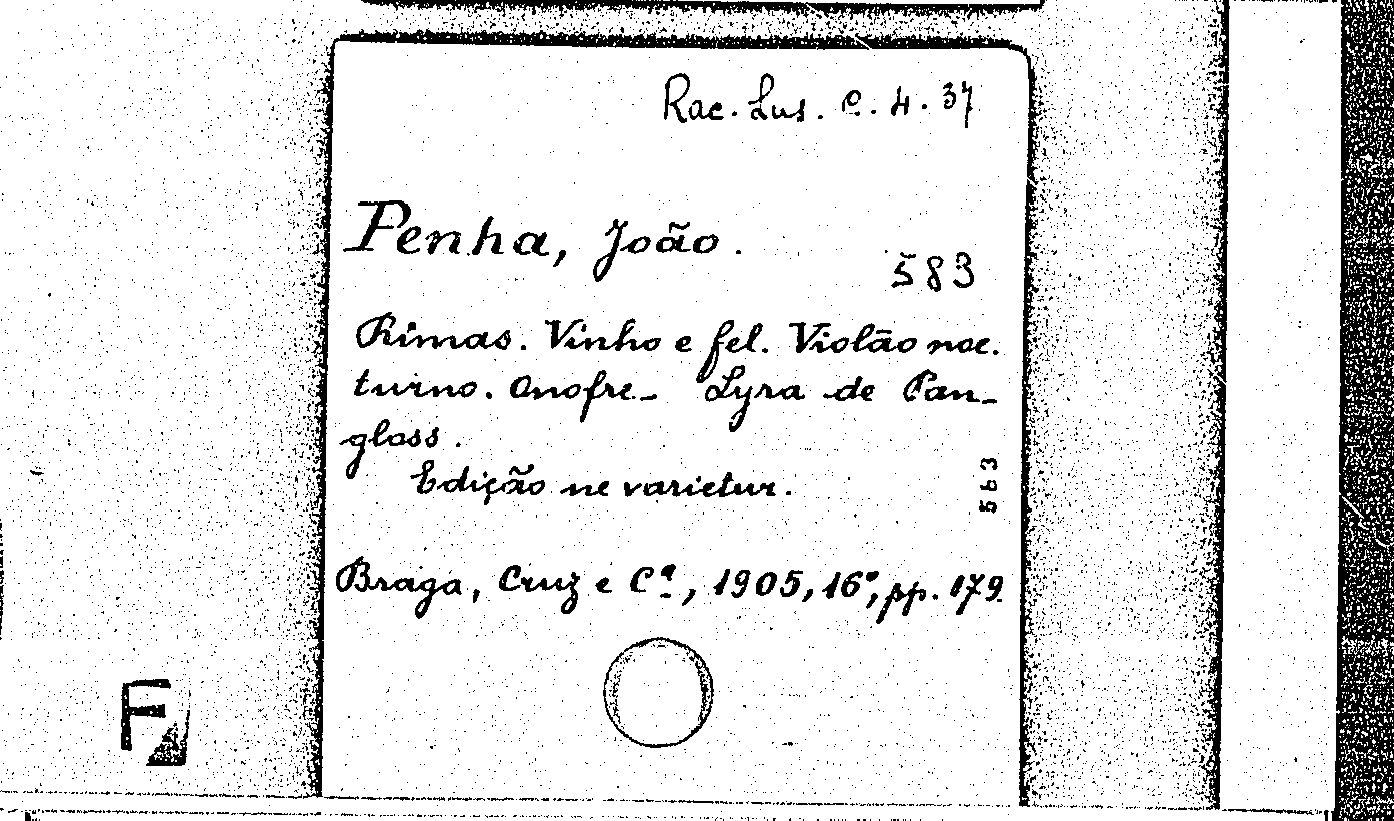 Rac. Lus. C. 4. 37
Penha, João.
583
Rimas. Vinho e fel. Violão noc.
turno. Onofre_ Lyra de Pan_
gloss.
Edição ne varietur.
563
Braga, Cruz e Cª, 1905, 16º, pp. 179.
F